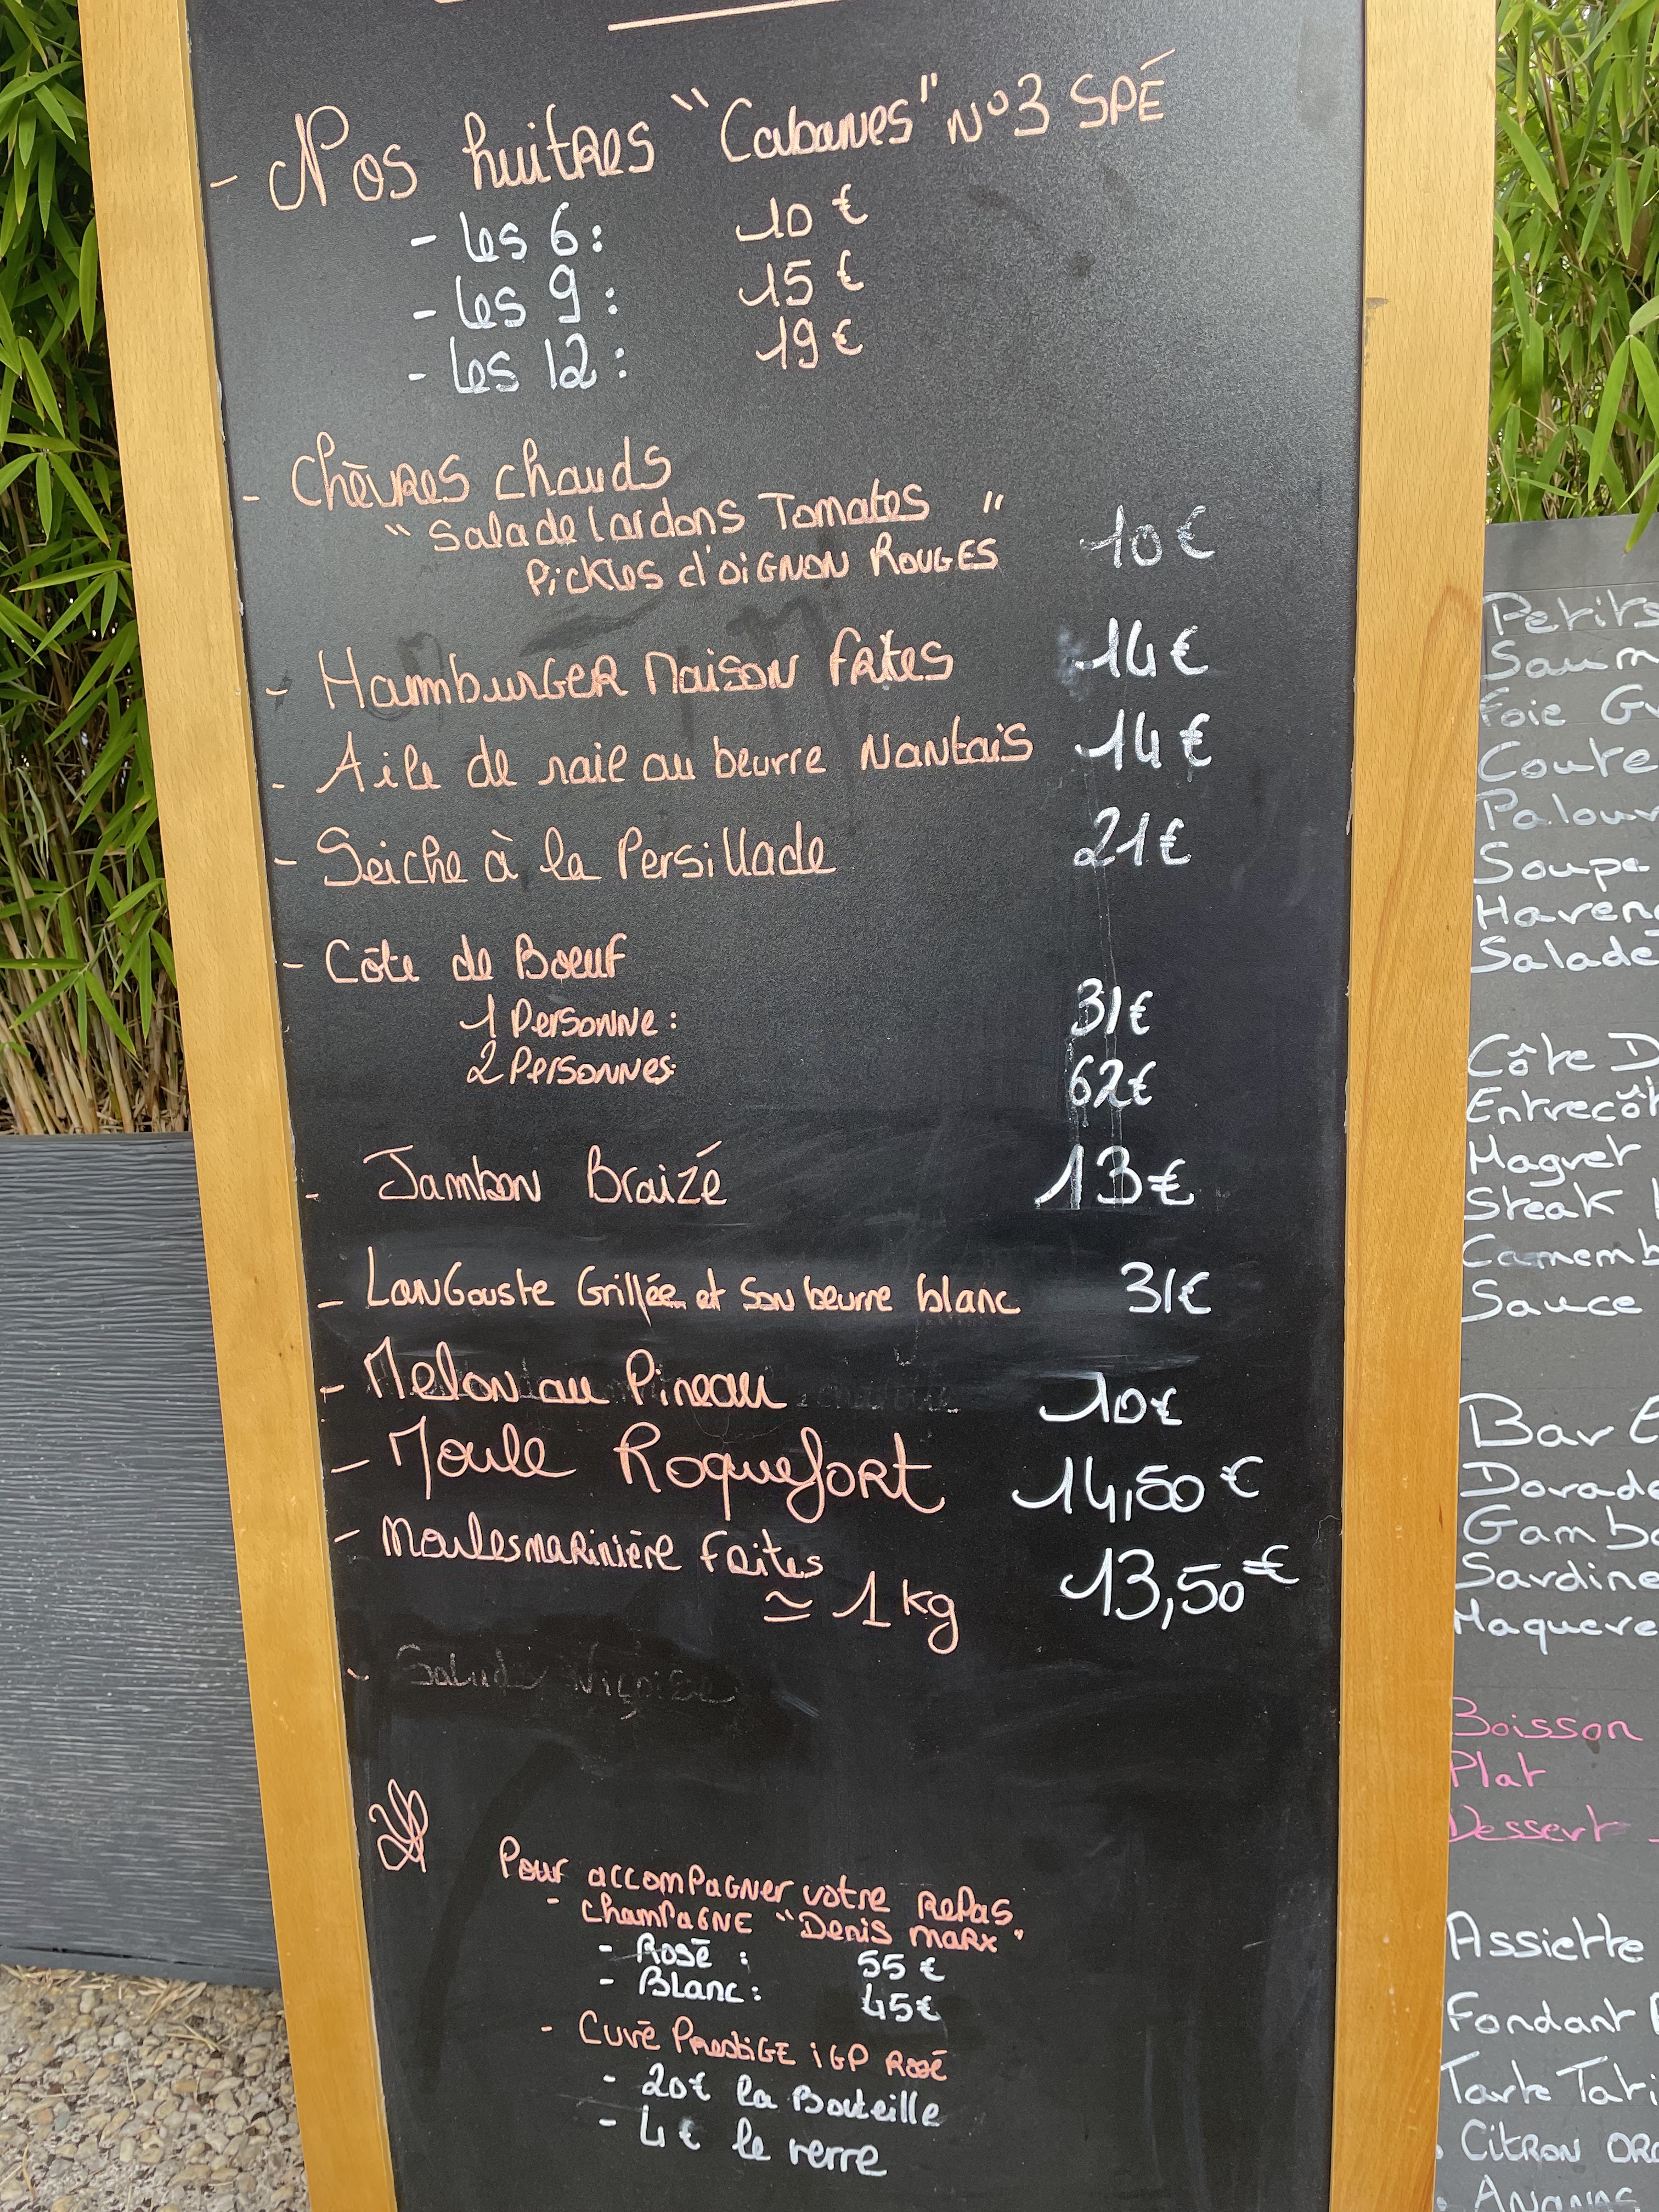 - Nos huitres "Cabanes" N°3 SPÉ
- les 6 : 10 €
- les 9 : 15 €
- les 12 : 19 €
- Chèvres chauds
"Salade lardons Tomates "
Pickles d'oignon Rouges 10 €
- Hamburger maison frites 14 €
- Aile de raie au beurre Nantais 14 €
- Seiche à la Persillade 21 €
- Côte de Boeuf
1 Personne : 31 €
2 Personnes: 62 €
- Jambon Braizé 13 €
- Langouste Grillée et son beurre blanc 31 €
- Melon au Pineau 10 €
- Moule Roquefort 14,50 €
- Moules marinière frites 13,50 €
≃ 1 kg
- Salade Niçoise
Pour accompagner votre Repas
- Champagne "Denis Marx"
- Rosé : 55 €
- Blanc : 45 €
- Cuvé Prestige iGP Rosé
- 20 € la Bouteille
- 4 € le verre
Petits
Saum
Foie G
Coute
Palour
Soupe
Haren
Salade
Côte D
Entrecôt
Magret
Steak
Camemb
Sauce
Bar E
Dorade
Gamba
Sardine
Maquere
Boisson
Plat
Dessert
Assiette
Fondant
Tarte Tati
Citron OR
Ananas